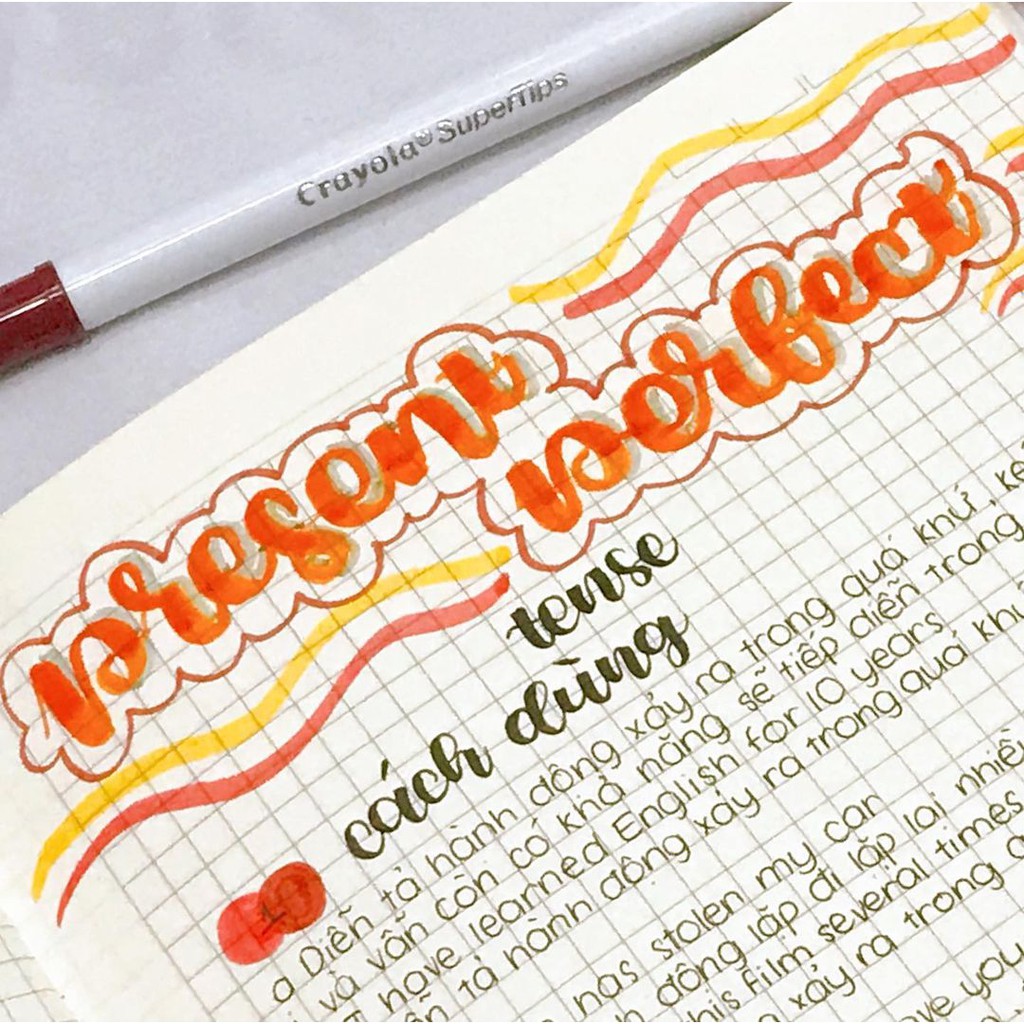 Crayola® SuperTips
present perfect
tense
cách dùng
1
a Diễn tả hành động xảy ra trong quá khứ, kế
và vẫn còn có khả năng sẽ tiếp diễn trong
I have learned English for 10 years
tả hành động xảy ra trong quá khứ
has stolen my car
động lặp đi lặp lại nhiều
this film several times
xảy ra trong
you